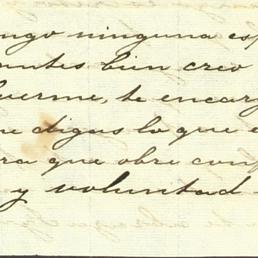 ngo ninguna es
antes bien creo
verme, te encarg
e digas lo que e
ra que obre conf
y voluntad